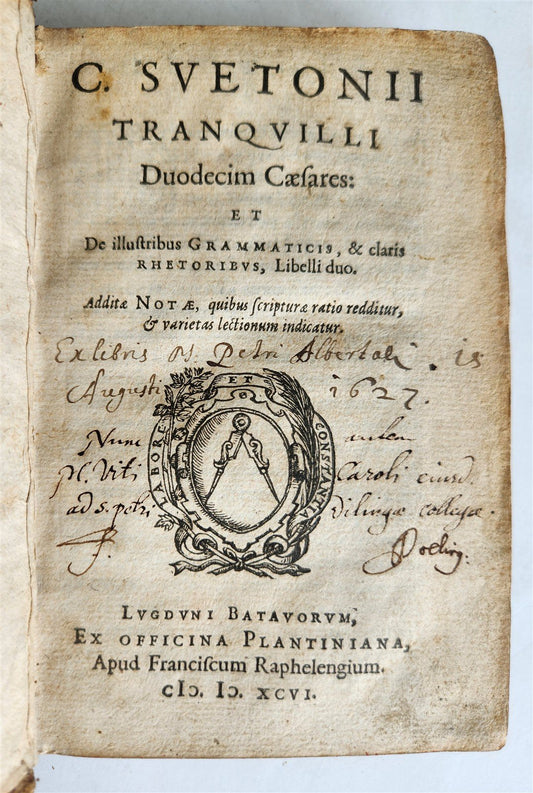 C. SVETONII
TRANQVILLI
Duodecim Cæſares:
ET
De illuſtribus GRAMMATICIS, & claris
RHETORIBVS, Libelli duo.
Additæ NOTÆ, quibus ſcripturæ ratio redditur,
& varietas lectionum indicatur.
Ex libris M. Petri Albertoli. 15
Augusti 1627.
LABORE ET CONSTANTIA
Nunc autem
Viti Caroli eiusd.
ad S. petri Dilingæ collegæ
LVGDVNI BATAVORVM,
EX OFFICINA PLANTINIANA,
Apud Franciſcum Raphelengium.
cIↃ. IↃ. XCVI.